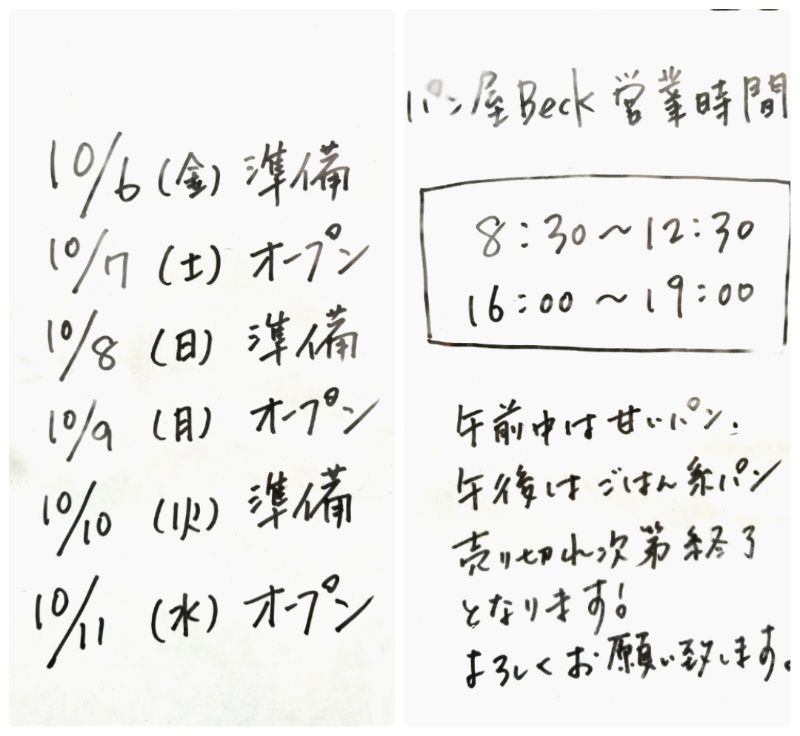 10/6 (金) 準備
10/7 (土) オープン
10/8 (日) 準備
10/9 (月) オープン
10/10 (火) 準備
10/11 (水) オープン
パン屋Beck 営業時間
8:30～12:30
16:00～19:00
午前中は甘いパン、
午後はごはん系パン
売り切れ次第終了
となります!
よろしくお願い致します。